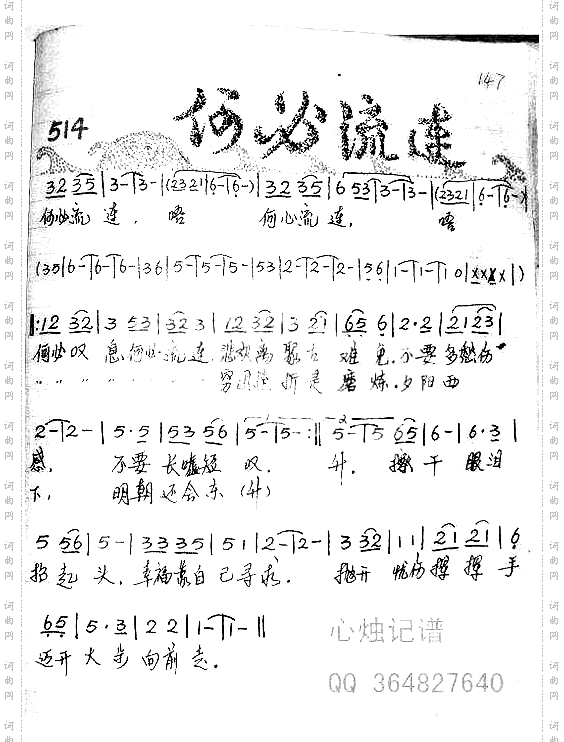 147
514
何必流连
32 35|3-|3-|(2321|6-|6-)|32 35|6 53|3-|3-|(2321|6-|6-)
何必流 连， 唔 何必流 连， 唔
(35|6-|6-|6-|36|5-|5-|5-|53|2-|2-|2-|56|1-|1-|1 0|xxxx|)
‖:12 32|3 53|32 3|12 32|3 21|65 6|2·2|2123|
何必叹 息，何必流连，悲欢离 聚古 难 免，不要多愁伤
" " " " " " " 折是 磨 炼，夕阳西
2-|2-|5·5|53 56|5-|5-:‖5-|5 65|6-|6·3|
感， 不要 长嘘短 叹， 升， 擦 干 眼泪
下， 明朝还会东（升）
5 56|5-|33 35|51|2-|2-|3 32|11|21 21|6
抬起 头，幸福靠自 己寻求， 抛开 忧伤 挥 挥 手
65|5·3|2 2|1-|1-‖
迈开 大 步 向前 走。
心烛记谱
QQ 364827640
词曲网